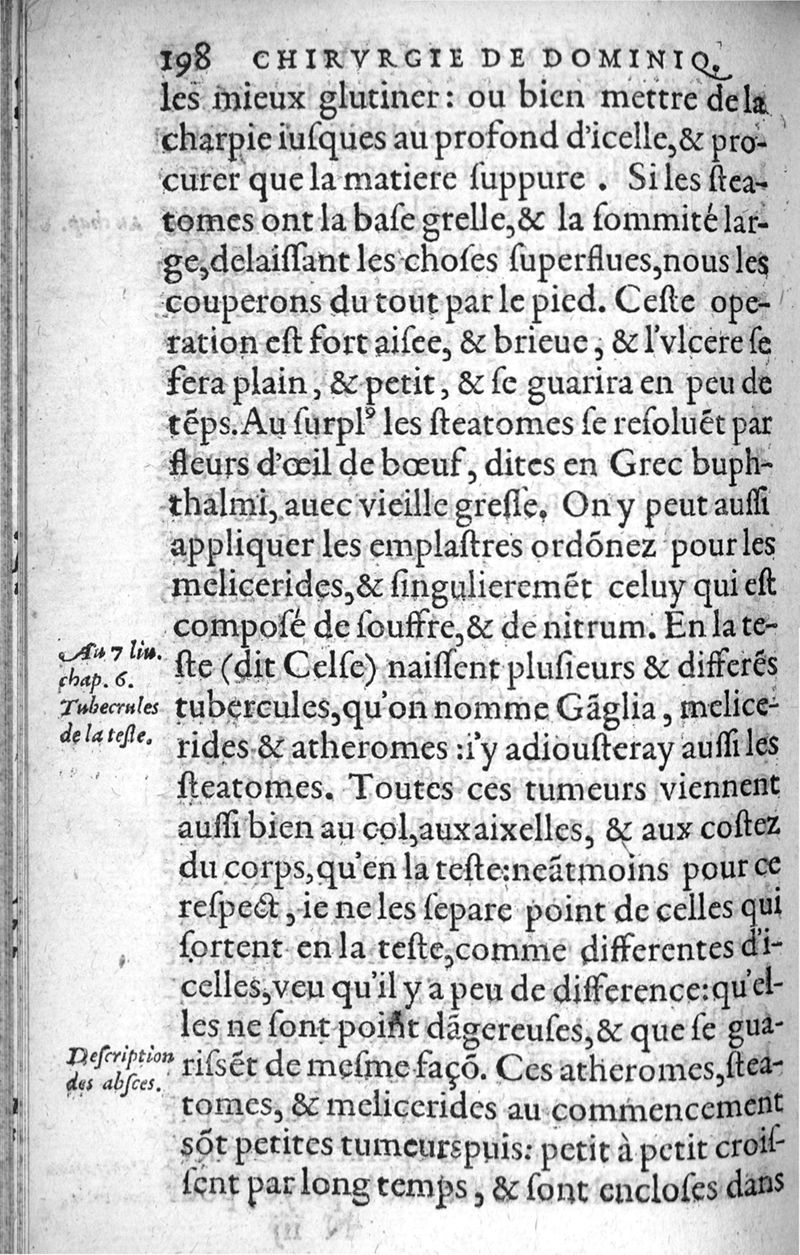 198 CHIRVRGIE DE DOMINIQ.
les mieux glutiner: ou bien mettre de la
charpie iuſques au profond d'icelle,& pro-
curer que la matiere ſuppure . Si les ſtea-
tomes ont la baſe grelle,& la ſommité lar-
ge,delaiſſant les choſes ſuperflues,nous les
couperons du tout par le pied. Ceſte ope-
ration eſt fort aiſee, & brieue, & l'vlcere ſe
fera plain, & petit, & ſe guarira en peu de
tẽps.Au ſurplꝰ les ſteatomes ſe reſoluẽt par
fleurs d'œil de bœuf, dites en Grec buph-
thalmi, auec vieille greſſe. On y peut auſſi
appliquer les emplaſtres ordõnez pour les
melicerides,& ſingulieremẽt celuy qui eſt
compoſé de ſouffre,& de nitrum. En la te-
Au 7 liu.
chap. 6.
Tubecrules
de la teſte.
ſte (dit Celſe) naiſſent pluſieurs & differẽs
tubercules,qu'on nomme Gãglia, melice-
rides & atheromes :i'y adiouſteray auſſi les
ſteatomes. Toutes ces tumeurs viennent
auſſi bien au col,aux aixelles, & aux coſtez
du corps,qu'en la teſte:neãtmoins pour ce
reſpect, ie ne les ſepare point de celles qui
ſortent en la teſte,comme differentes d'i-
celles,veu qu'il y a peu de difference:qu'el-
les ne ſont point dãgereuſes,& que ſe gua-
Deſcription
des abſces.
riſsẽt de meſme façõ. Ces atheromes,ſtea-
tomes, & melicerides au commencement
sõt petites tumeurspuis: petit à petit croiſ-
ſent par long temps, & ſont encloſes dans